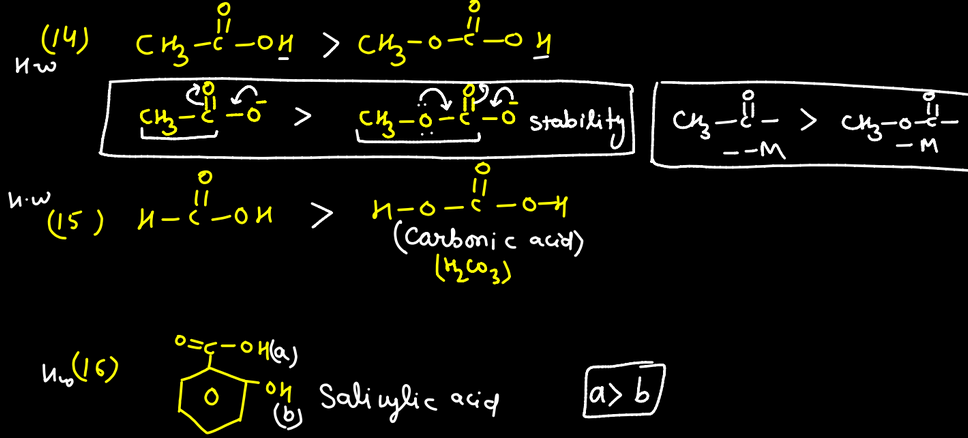 H·w (14) CH₃–C(=O)–OH > CH₃–O–C(=O)–OH
CH₃–C(=O)–O⁻ > CH₃–Ö–C(=O)–O⁻ stability
CH₃–C(=O)– > CH₃–O–C(=O)–
––M –M
H·w (15) H–C(=O)–OH > H–O–C(=O)–O–H
(Carbonic acid)
(H₂CO₃)
H·w (16) O=C–OH(a)
OH
(b)
Salicylic acid
a > b